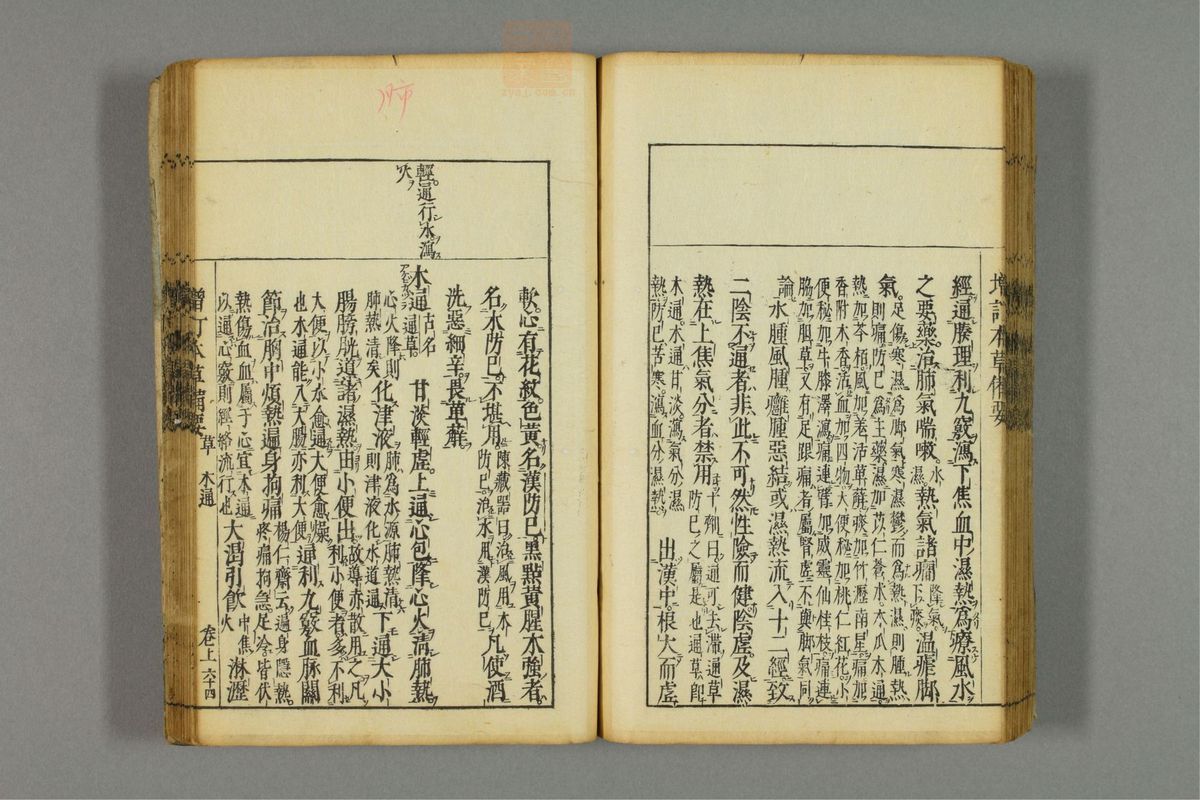 增訂本草備要
經通腠理利九竅瀉下焦血中濕熱爲療風水
之要藥治肺氣喘嗽水濕熱氣諸癇降氣下痰溫瘧脚
氣足傷寒濕爲脚氣寒濕鬱而爲熱濕則腫熱則痛防已爲主藥濕加苡仁蒼朮木瓜木通
熱加芩栢風加羌活萆薢痰加竹瀝南星痛加香附木香活血加四物大便秘加桃仁紅花小
便秘加牛膝澤瀉痛連臂加威靈仙桂枝痛連脇加胆草又有足跟痛者屬腎虛不與脚氣同
論水腫風腫癰腫惡結或濕熱流入十二經致
二陰不通者非此不可然性險而健陰虛及濕
熱在上焦氣分者禁用十劑曰通可去滯通草防已之屬是也通草卽
木通木通甘淡瀉氣分濕熱防已苦寒瀉血分濕熱出漢中根大而虛
軟心有花紋色黃名漢防已黑點黃腥木強者
名木防已不堪用陳藏器曰治風用木防已治水用漢防已凡使酒
洗惡細辛畏萆薢
輕通行水瀉
火
木通古名通草甘淡輕虛上通心包降心火清肺熱
心火降則肺熱清矣化津液肺爲水源肺熱清則津液化水道通下通大小
腸膀胱道諸濕熱由小便出故導赤散用之凡利小便者多不利
大便以小水愈通大便愈燥也木通能入大腸亦利大便通利九竅血脉關
節治胸中煩熱遍身拘痛楊仁齋云遍身隱熱疼痛拘急足冷皆伏
熱傷血血屬于心宜木通以通心竅則經絡流行也大渴引飲中焦火淋瀝
增訂本草備要
草
木通
卷上
六十四